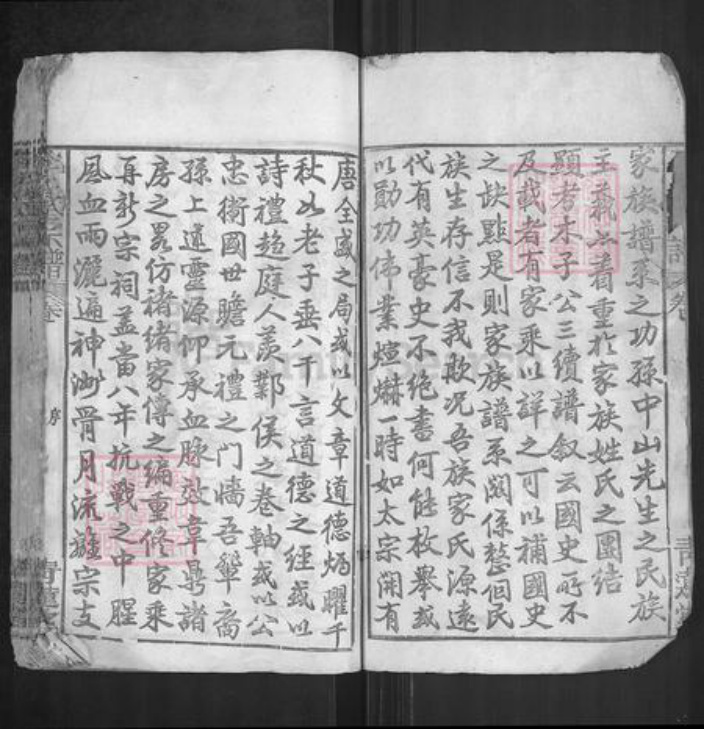 家族譜系之功孫中山先生之民族
主義亦着重於家族姓氏之團結
顯考木子公三續譜叙云國史所不
及載者有家乘以詳之可以補國史
之缺點是則家族譜系關係整個民
族生存信不我欺况吾族家氏源遠
代有英豪史不絕書何能枚舉或
以勛功偉業煊赫一時如太宗開有
唐全盛之局或以文章道德炳曜千
秋如老子垂八千言道德之經或以
詩禮趨庭人羨鄴侯之卷軸或以公
忠衛國世瞻元禮之門墻吾輩裔
孫上述靈源仰承血脉效韋鼎諸
房之畧仿褚緒家傳之編重修家乘
再新宗祠盖當八年抗戰之中腥
風血雨灑遍神洲骨月流離宗支
氏宗譜
卷
序
青蓮
譜
卷
青蓮